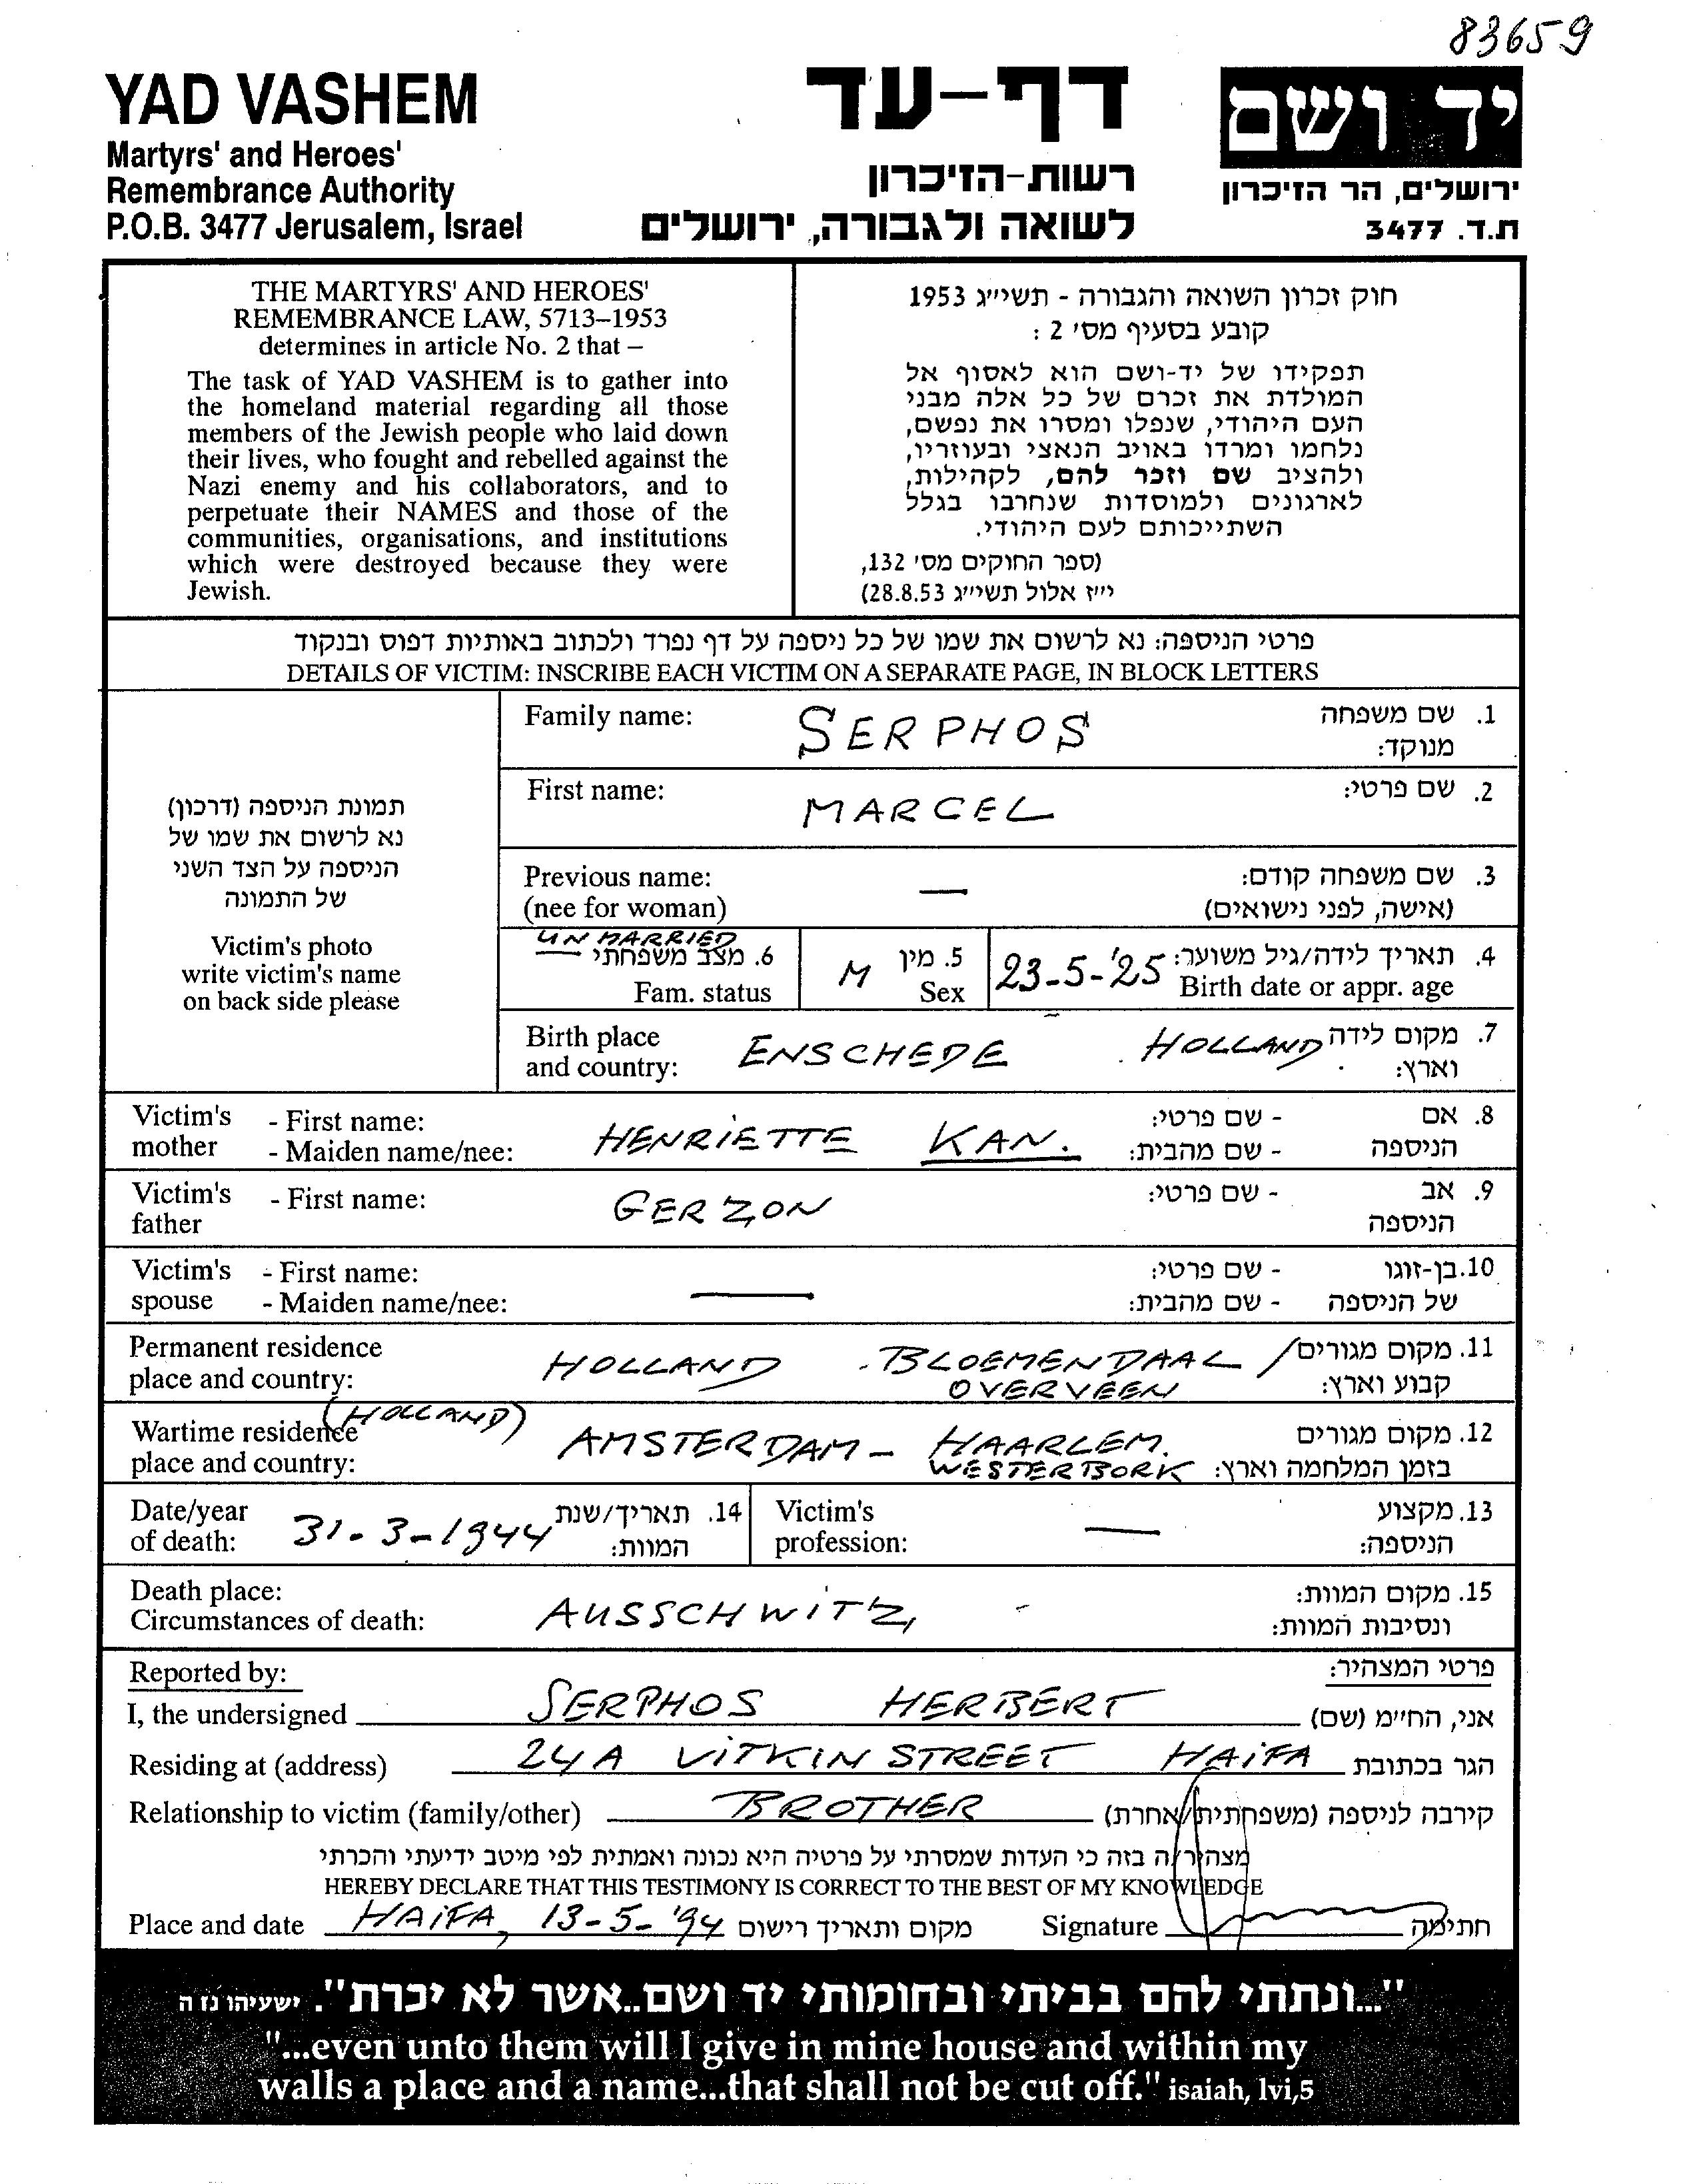 83659
YAD VASHEM
Martyrs' and Heroes'
Remembrance Authority
P.O.B. 3477 Jerusalem, Israel
דף-עד
רשות-הזיכרון
לשואה ולגבורה, ירושלים
יד ושם
ירושלים, הר הזיכרון
ת.ד. 3477
THE MARTYRS' AND HEROES'
REMEMBRANCE LAW, 5713–1953
determines in article No. 2 that –
The task of YAD VASHEM is to gather into
the homeland material regarding all those
members of the Jewish people who laid down
their lives, who fought and rebelled against the
Nazi enemy and his collaborators, and to
perpetuate their NAMES and those of the
communities, organisations, and institutions
which were destroyed because they were
Jewish.
חוק זכרון השואה והגבורה - תשי״ג 1953
קובע בסעיף מס׳ 2 :
תפקידו של יד-ושם הוא לאסוף אל
המולדת את זכרם של כל אלה מבני
העם היהודי, שנפלו ומסרו את נפשם,
נלחמו ומרדו באויב הנאצי ובעוזריו,
ולהציב שם וזכר להם, לקהילות,
לארגונים ולמוסדות שנחרבו בגלל
השתייכותם לעם היהודי.
(ספר החוקים מס׳ 132,
י״ז אלול תשי״ג 28.8.53)
פרטי הניספה: נא לרשום את שמו של כל ניספה על דף נפרד ולכתוב באותיות דפוס ובנקוד
DETAILS OF VICTIM: INSCRIBE EACH VICTIM ON A SEPARATE PAGE, IN BLOCK LETTERS
תמונת הניספה (דרכון)
נא לרשום את שמו של
הניספה על הצד השני
של התמונה
Victim's photo
write victim's name
on back side please
Family name: SERPHOS 1. שם משפחה
מנוקד:
First name: MARCEL 2. שם פרטי:
Previous name: — 3. שם משפחה קודם:
(nee for woman) (אישה, לפני נישואים)
UNMARRIED
6. מצב משפחתי
Fam. status
M 5. מין
Sex
23-5-'25 4. תאריך לידה/גיל משוער:
Birth date or appr. age
Birth place ENSCHEDE HOLLAND 7. מקום לידה
and country: וארץ:
Victim's - First name: HENRIETTE KAN. - שם פרטי: 8. אם
mother - Maiden name/nee: - שם מהבית: הניספה
Victim's - First name: GERZON - שם פרטי: 9. אב
father הניספה
Victim's - First name: - שם פרטי: 10. בן-זוגו
spouse - Maiden name/nee: — - שם מהבית: של הניספה
Permanent residence HOLLAND - BLOEMENDAAL / 11. מקום מגורים
place and country: OVERVEEN קבוע וארץ:
(HOLLAND)
Wartime residence AMSTERDAM - HAARLEM. 12. מקום מגורים
place and country: WESTERBORK בזמן המלחמה וארץ:
Date/year 31-3-1944 14. תאריך/שנת
of death: המוות:
Victim's — 13. מקצוע
profession: הניספה:
Death place: AUSSCHWITZ, - 15. מקום המוות:
Circumstances of death: ונסיבות המוות:
Reported by: פרטי המצהיר:
I, the undersigned SERPHOS HERBERT אני, החי״מ (שם)
Residing at (address) 24A VITKIN STREET HAIFA הגר בכתובת
Relationship to victim (family/other) BROTHER קירבה לניספה (משפחתית/אחרת)
מצהיר/ה בזה כי העדות שמסרתי על פרטיה היא נכונה ואמתית לפי מיטב ידיעתי והכרתי
HEREBY DECLARE THAT THIS TESTIMONY IS CORRECT TO THE BEST OF MY KNOWLEDGE
Place and date HAIFA, 13-5-'94 מקום ותאריך רישום Signature חתימה
"...ונתתי להם בביתי ובחומותי יד ושם..אשר לא יכרת". ישעיהו נו ה
"...even unto them will I give in mine house and within my
walls a place and a name...that shall not be cut off." isaiah, lvi,5